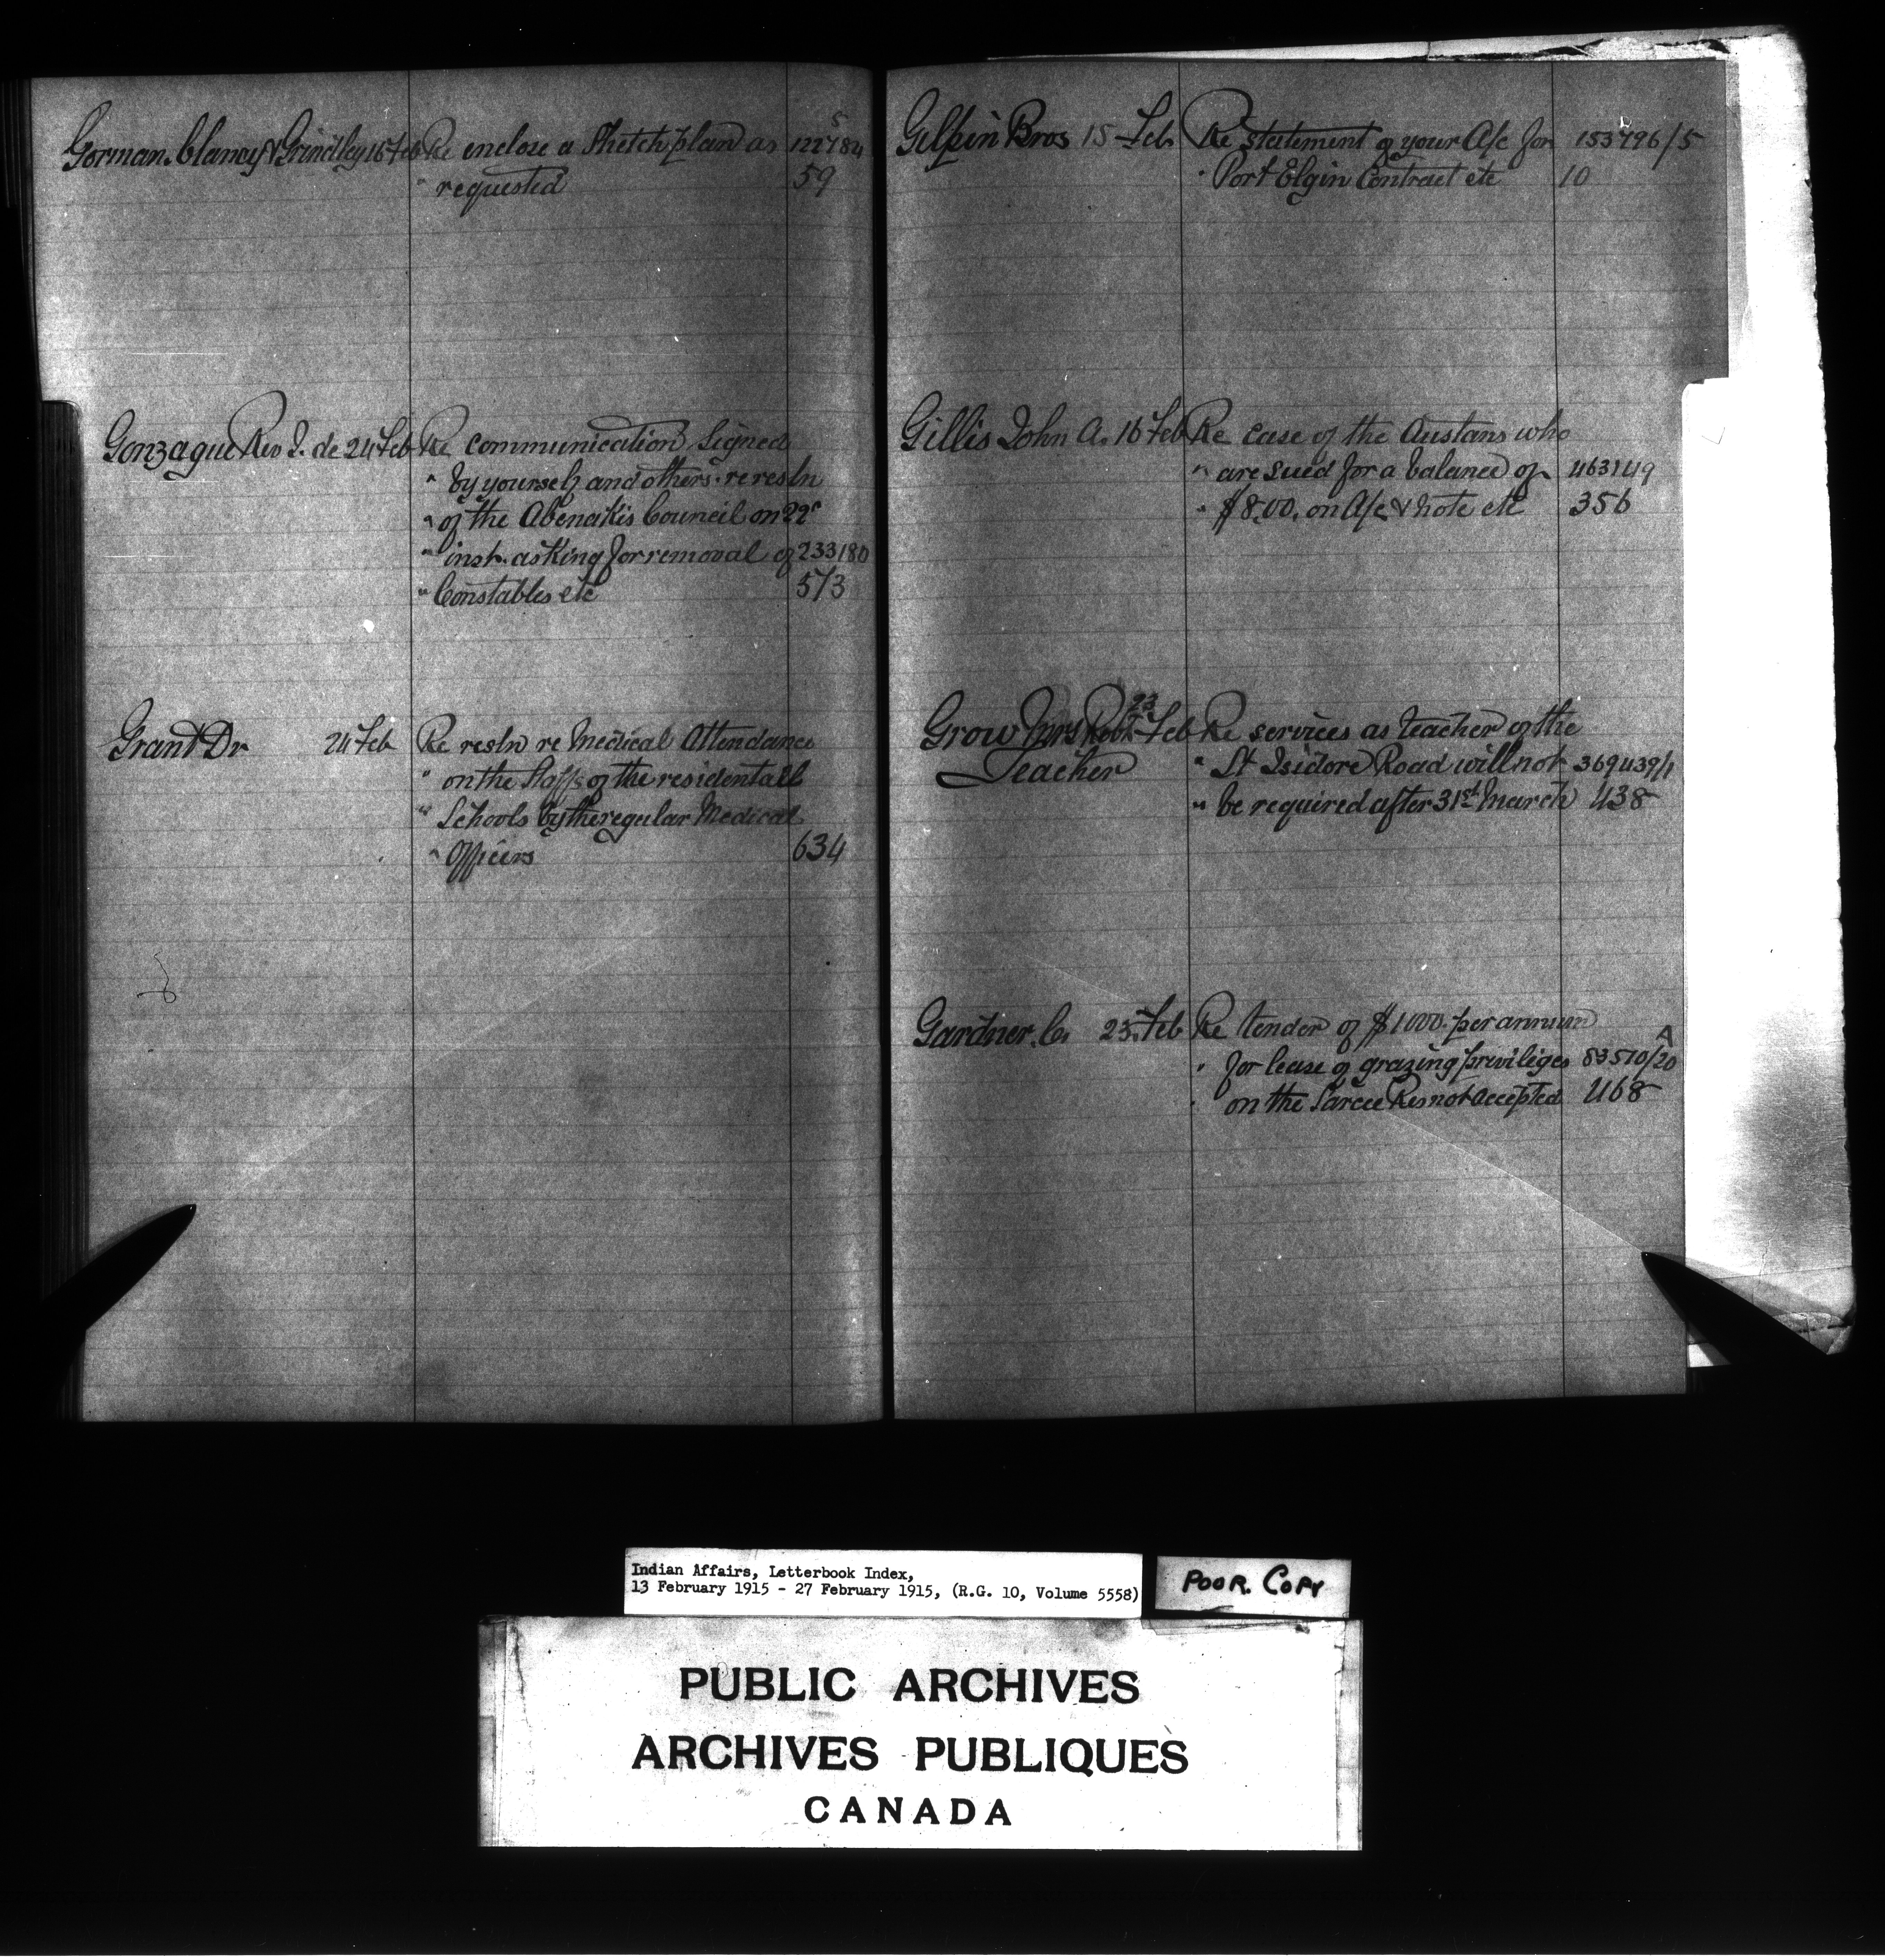 Gorman. Clancy & Grindley 16 Feb Re enclose a Sketch plan as 122784 5
" requested 59
Gonzague Rev J. de 24 Feb Re communication signed
" by yourself and others re resln
" of the Abenakis Council on 22"
" inst. asking for removal of 233180
" Constables etc 573
Grant Dr 24 Feb Re resln re Medical Attendance
" on the Staffs of the residentail
" Schools by the regular Medical
" Officers 634
Gilpin Bros 15 Feb Re statement of your A/c for 153796/5
" Port Elgin Contract etc 10
Gillis John A. 16 Feb Re case of the Austans who
" are sued for a balance of 463149
" $8.00. on A/c & note etc 356
Grow Mrs Robt. 23 Feb Re services as teacher of the
Teacher " St Isidore Road will not 369439/1
" be required after 31st March 438
Gardner. C. 25 Feb Re tender of $1000. per annum A
" for lease of grazing privileges 83510/20
" on the Sarcee Res not accepted 468
Indian Affairs, Letterbook Index,
13 February 1915 - 27 February 1915, (R.G. 10, Volume 5558)
POOR. COPY
PUBLIC ARCHIVES
ARCHIVES PUBLIQUES
CANADA